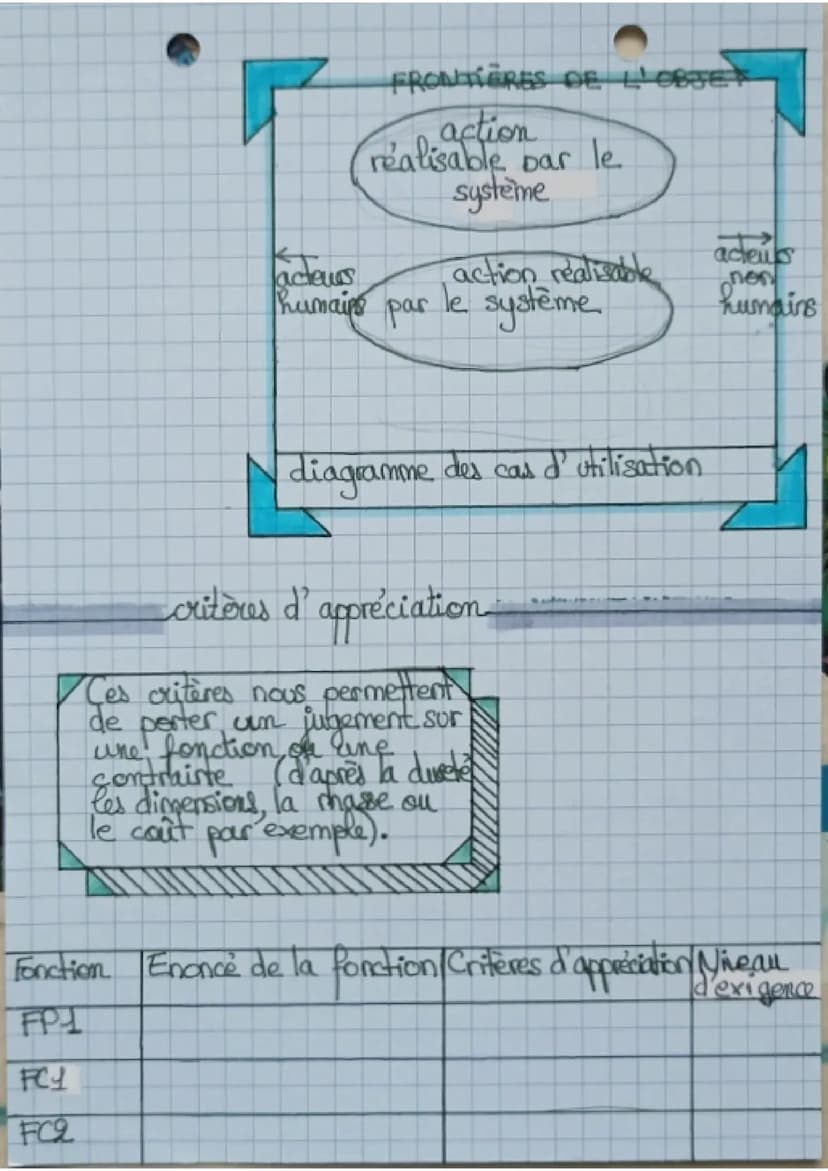 FRONTIÈRES DE L'OBJET
action
réalisable par le
système
acteurs
humains
action réalisable
par le système
acteurs
non
humains
diagramme des cas d'utilisation
critères d'appréciation
Ces critères nous permettent
de porter un jugement sur
une fonction ou une
contrainte (d'après la dureté
les dimensions, la masse ou
le coût par exemple).
Fonction Enoncé de la fonction Critères d'appréciation Niveau
d'exigence
FP1
FC1
FC2